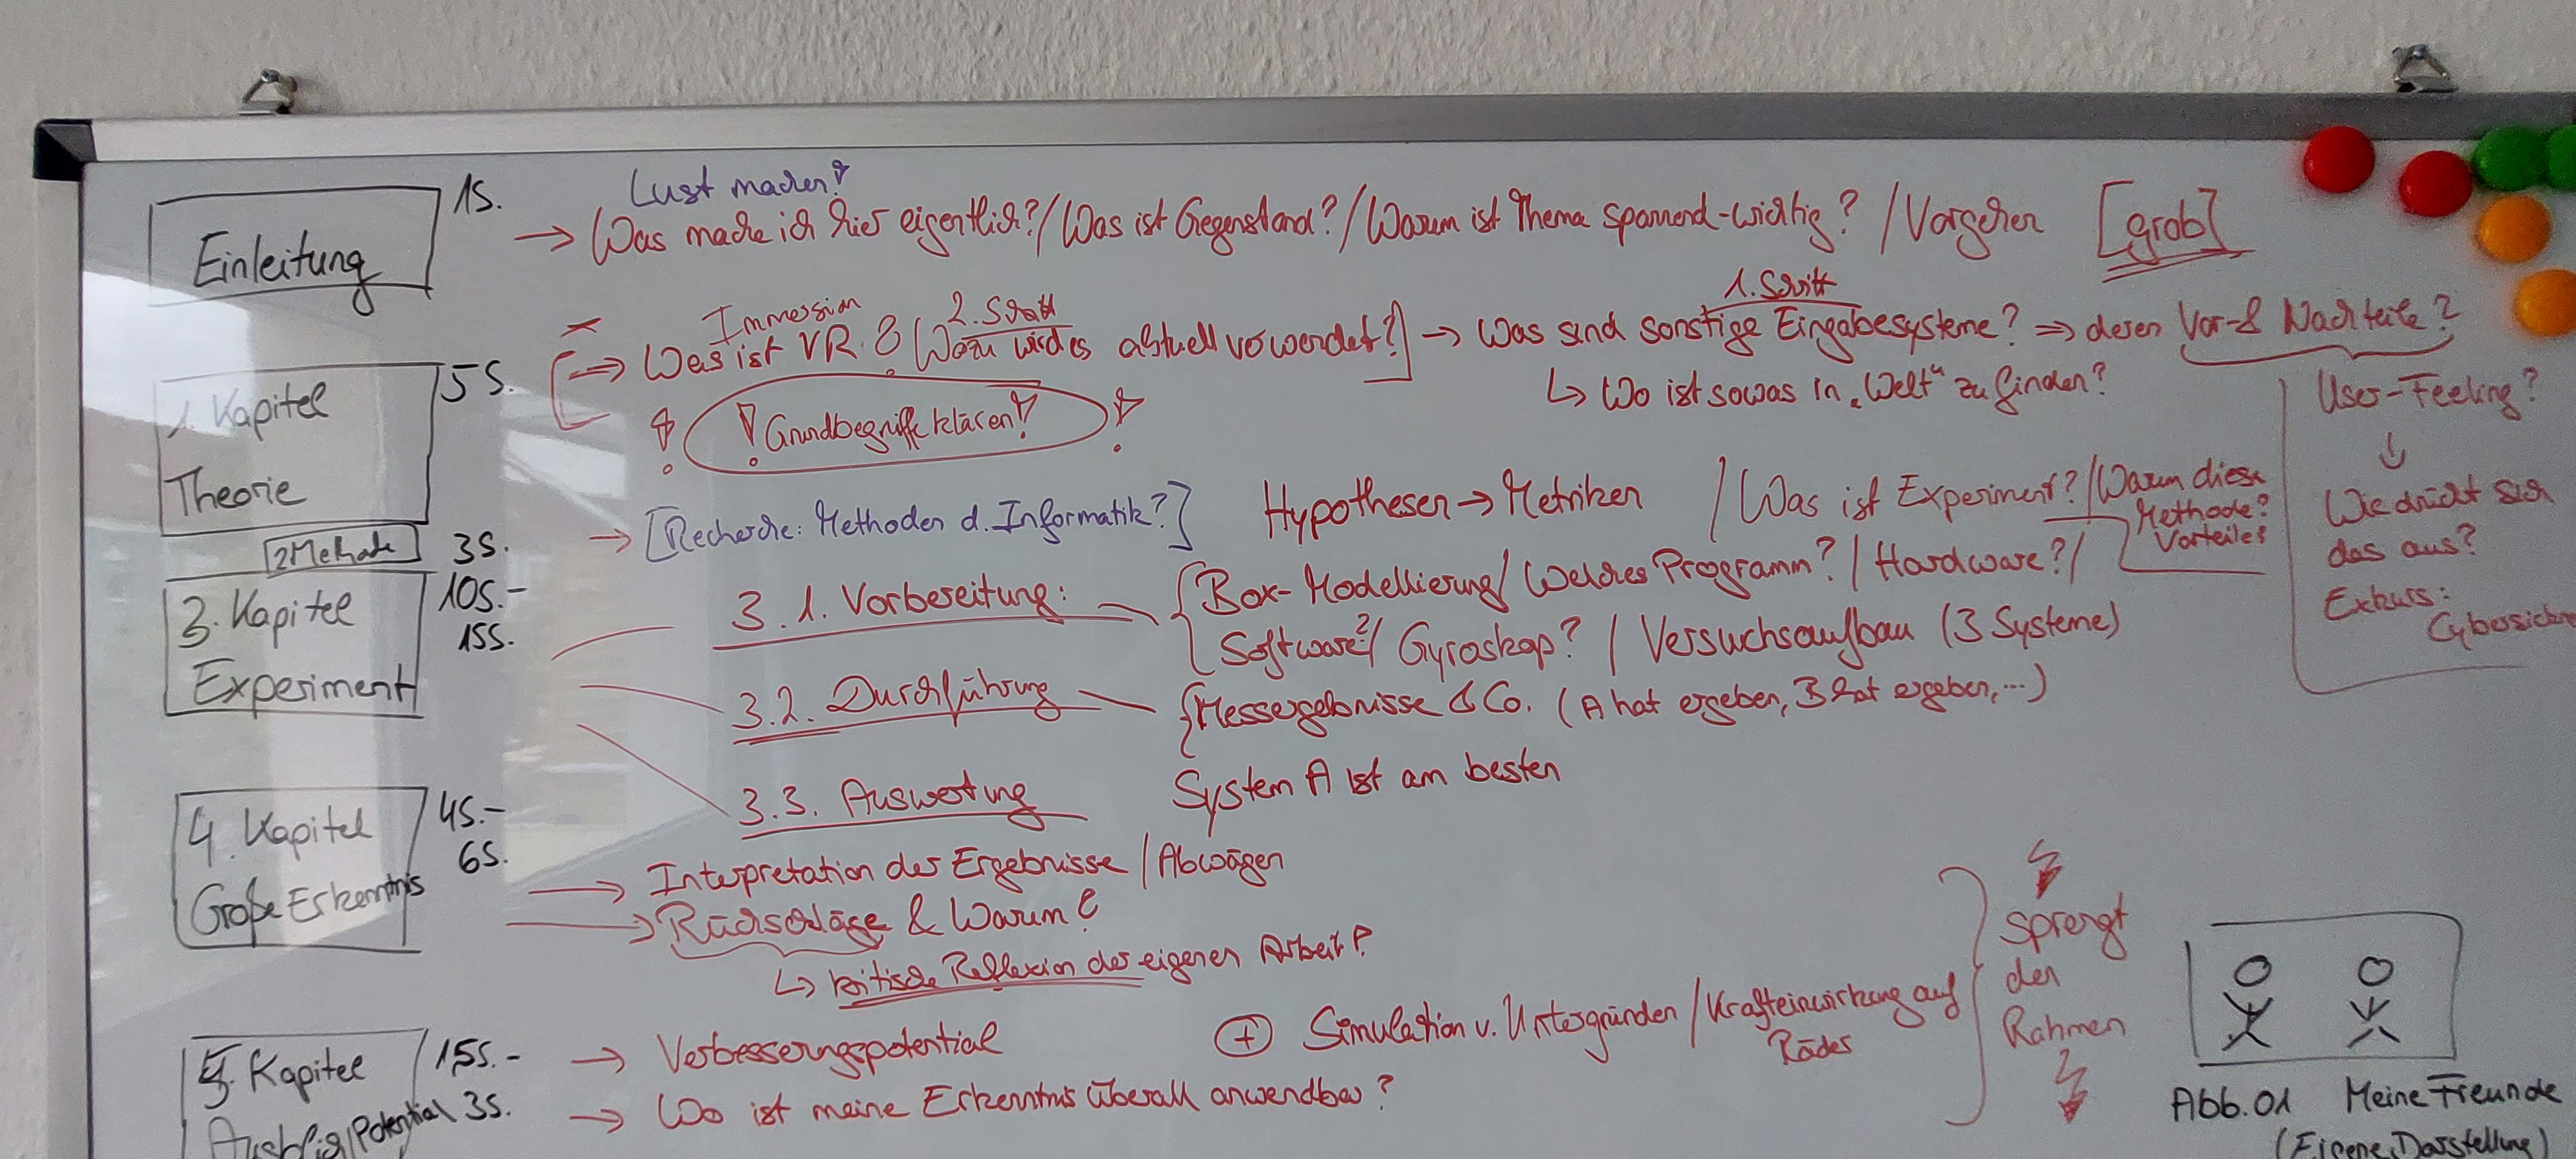 Einleitung
1S.
Lust machen!
→ Was mache ich hier eigentlich? / Was ist Gegenstand? / Warum ist Thema spannend-wichtig? / Vorgehen [grob]
1. Kapitel
Theorie
5S.
Immersion
2. Schritt
1. Schritt
→ Was ist VR? [Wozu wird es aktuell verwendet?] → Was sind sonstige Eingabesysteme? ⇒ deren Vor- & Nachteile?
↳ Wo ist sowas in „Welt“ zu finden?
! ! Grundbegriffe klären! !
User-Feeling?
↓
Wie drückt sich
das aus?
Exkurs:
2 Methode
3S.
→ [Recherche: Methoden d. Informatik?] Hypothesen → Metriken / Was ist Experiment? / Warum diese
Methode?
Vorteile?
3. Kapitel
Experiment
10S.-
15S.
3.1. Vorbereitung:
Box-Modellierung / Welches Programm? / Hardware? /
Software? / Gyroskop? / Versuchsaufbau (3 Systeme)
3.2. Durchführung
Messergebnisse & Co. (A hat ergeben, B hat ergeben, ...)
3.3. Auswertung
System A ist am besten
4. Kapitel
Große Erkenntnis
4S.-
6S.
→ Interpretation der Ergebnisse / Abwägen
→ Rückschläge & Warum?
↳ kritische Reflexion der eigenen Arbeit?
5. Kapitel
Ausblick/Potential
1,5S.-
3S.
→ Verbesserungspotential
⊕ Simulation v. Untergründen / Krafteinwirkung auf
Räder
→ Wo ist meine Erkenntnis überall anwendbar?
sprengt
den
Rahmen
Abb. 01 Meine Freunde
(Eigene Darstellung)